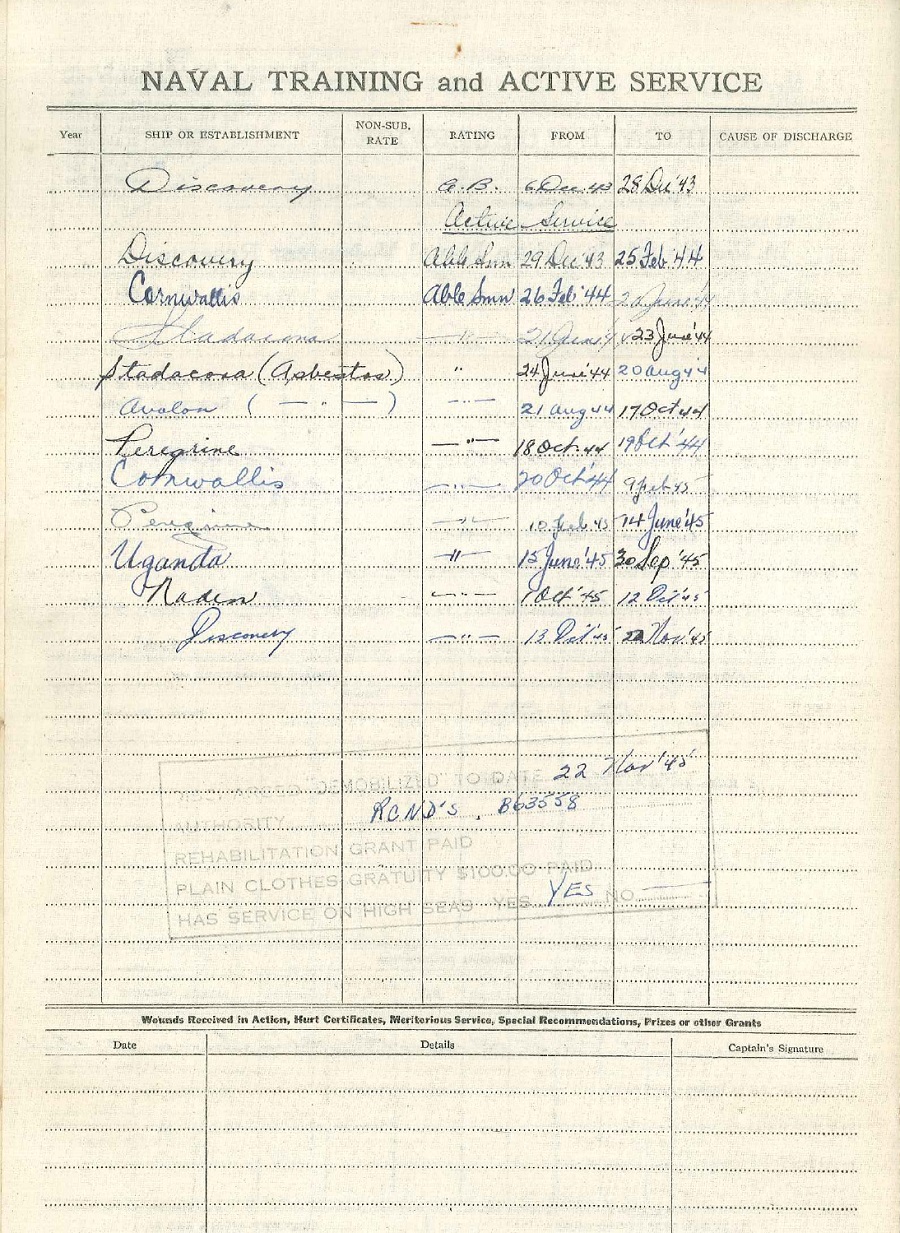 NAVAL TRAINING and ACTIVE SERVICE
Year SHIP OR ESTABLISHMENT NON-SUB. RATE RATING FROM TO CAUSE OF DISCHARGE
Discovery A.B. 6 Dec 43 28 Dec '43
Active Service
Discovery Able Smn 29 Dec '43 25 Feb '44
Cornwallis Able Smn 26 Feb '44 20 June '44
Stadacona —"— 21 June 44 23 June '44
Stadacona (Asbestos) " 24 June '44 20 Aug 44
Avalon ( — " — ) —"— 21 Aug 44 17 Oct 44
Peregrine —"— 18 Oct. 44 19 Oct '44
Cornwallis —"— 20 Oct '44 9 Feb 45
Peregrine —"— 10 Feb 45 14 June '45
Uganda —"— 15 June '45 30 Sep '45
Naden —"— 1 Oct '45 12 Oct '45
Discovery —"— 13 Oct '45 22 Nov '45
"DEMOBILIZED" TO DATE 22 Nov '45
AUTHORITY RCND'S. B63558
REHABILITATION GRANT PAID
PLAIN CLOTHES GRATUITY $100.00 PAID
HAS SERVICE ON HIGH SEAS YES YES NO
Wounds Received in Action, Hurt Certificates, Meritorious Service, Special Recommendations, Prizes or other Grants
Date Details Captain's Signature